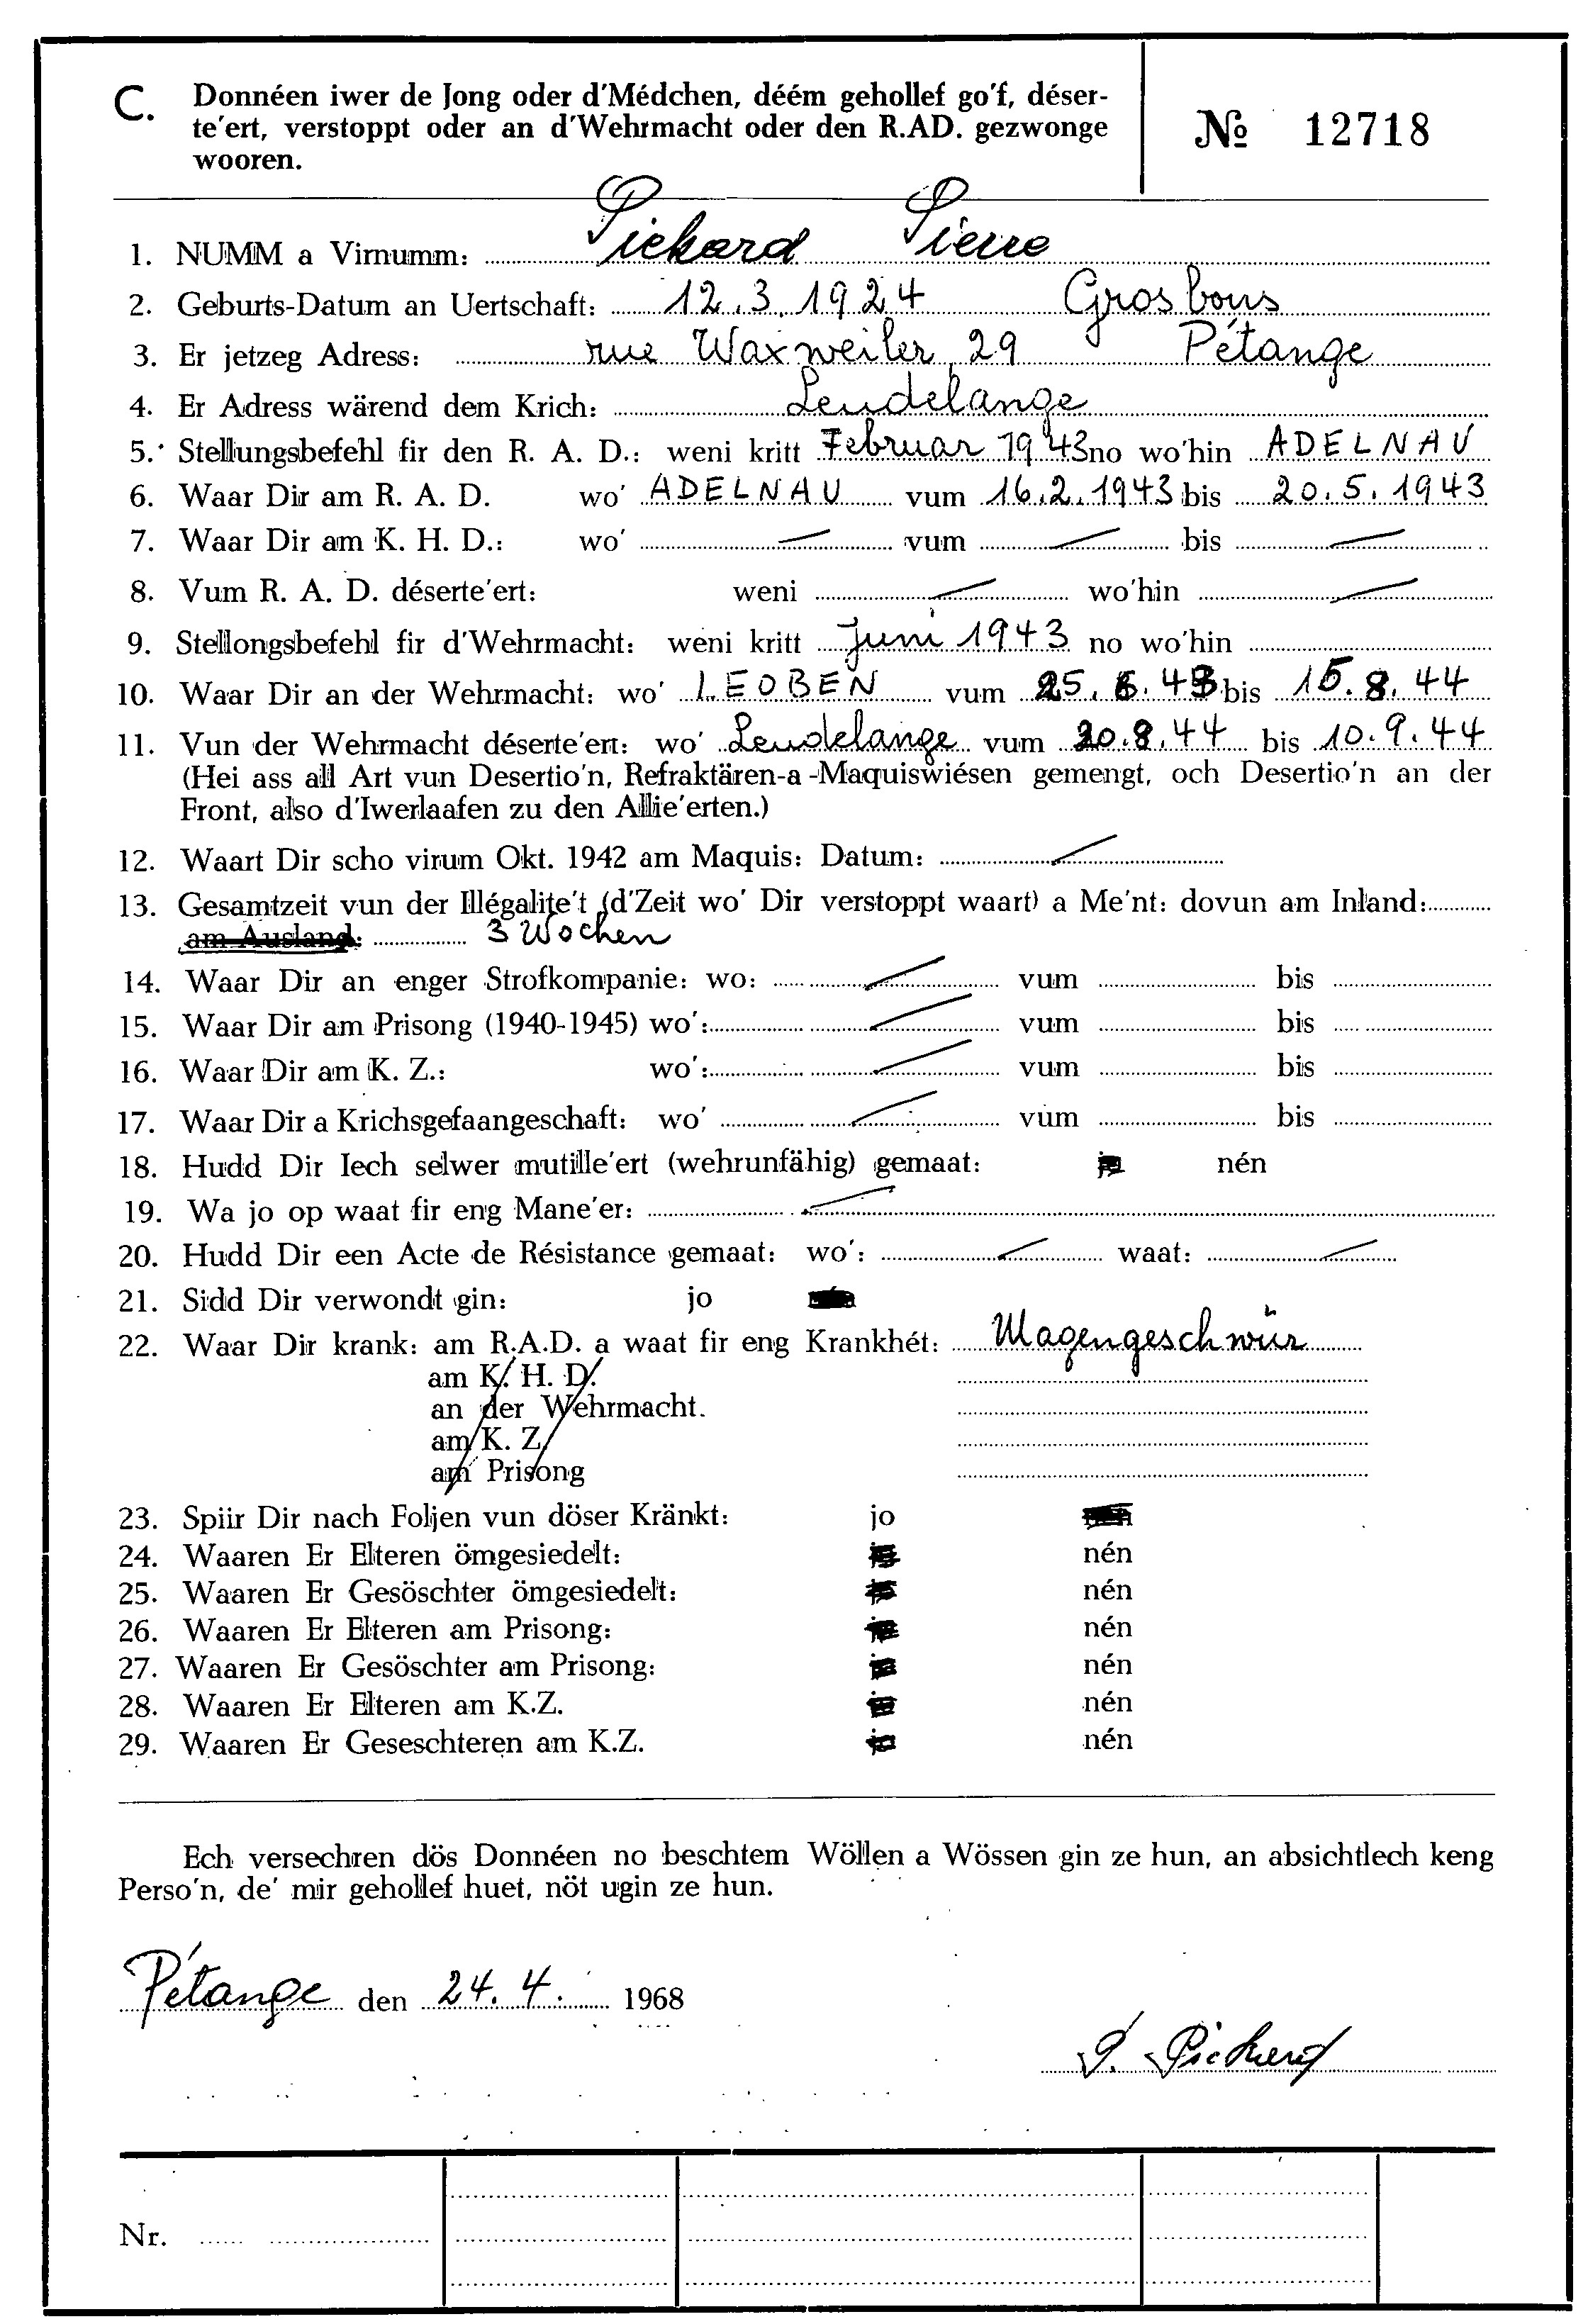 C. Donnéen iwer de Jong oder d'Médchen, déém gehollef go'f, déser-
te'ert, verstoppt oder an d'Wehrmacht oder den R.AD. gezwonge
wooren.
№ 12718
1. NUMM a Virnumm: Pickard Pierre
2. Geburts-Datum an Uertschaft: 12.3.1924 Grosbous
3. Er jetzeg Adress: rue Waxweiler 29 Pétange
4. Er Adress wärend dem Krich: Leudelange
5. Stellungsbefehl fir den R. A. D.: weni kritt Februar 1943 no wo'hin ADELNAU
6. Waar Dir am R. A. D. wo' ADELNAU vum 16.2.1943 bis 20.5.1943
7. Waar Dir am K. H. D.: wo' — vum — bis —
8. Vum R. A. D. déserte'ert: weni — wo'hin —
9. Stellongsbefehl fir d'Wehrmacht: weni kritt Juni 1943 no wo'hin
10. Waar Dir an der Wehrmacht: wo' LEOBEN vum 25.6.43 bis 15.8.44
11. Vun der Wehrmacht déserte'ert: wo' Leudelange vum 20.8.44 bis 10.9.44
(Hei ass all Art vun Desertio'n, Refraktären-a-Maquiswiésen gemengt, och Desertio'n an der
Front, also d'Iwerlaafen zu den Allie'erten.)
12. Waart Dir scho virum Okt. 1942 am Maquis: Datum: —
13. Gesamtzeit vun der Illégalite't (d'Zeit wo' Dir verstoppt waart) a Me'nt: dovun am Inland:
am Ausland: 3 Wochen
14. Waar Dir an enger Strofkompanie: wo: — vum bis
15. Waar Dir am Prisong (1940-1945) wo': — vum bis
16. Waar Dir am K. Z.: wo': — vum bis
17. Waar Dir a Krichsgefaangeschaft: wo' — vum bis
18. Hudd Dir Iech selwer mutille'ert (wehrunfähig) gemaat: jo nén
19. Wa jo op waat fir eng Mane'er: —
20. Hudd Dir een Acte de Résistance gemaat: wo': — waat: —
21. Sidd Dir verwondt gin: jo nén
22. Waar Dir krank: am R.A.D. a waat fir eng Krankhét: Magengeschwür
am K. H. D.
an der Wehrmacht.
am K. Z.
am Prisong
23. Spiir Dir nach Foljen vun döser Kränkt: jo nén
24. Waaren Er Elteren ömgesiedelt: jo nén
25. Waaren Er Gesöschter ömgesiedelt: jo nén
26. Waaren Er Elteren am Prisong: jo nén
27. Waaren Er Gesöschter am Prisong: jo nén
28. Waaren Er Elteren am K.Z. jo nén
29. Waaren Er Geseschteren am K.Z. jo nén
Ech versechren dös Donnéen no beschtem Wöllen a Wössen gin ze hun, an absichtlech keng
Perso'n, de' mir gehollef huet, nöt ugin ze hun.
Pétange den 24.4. 1968
P. Pickard
Nr.